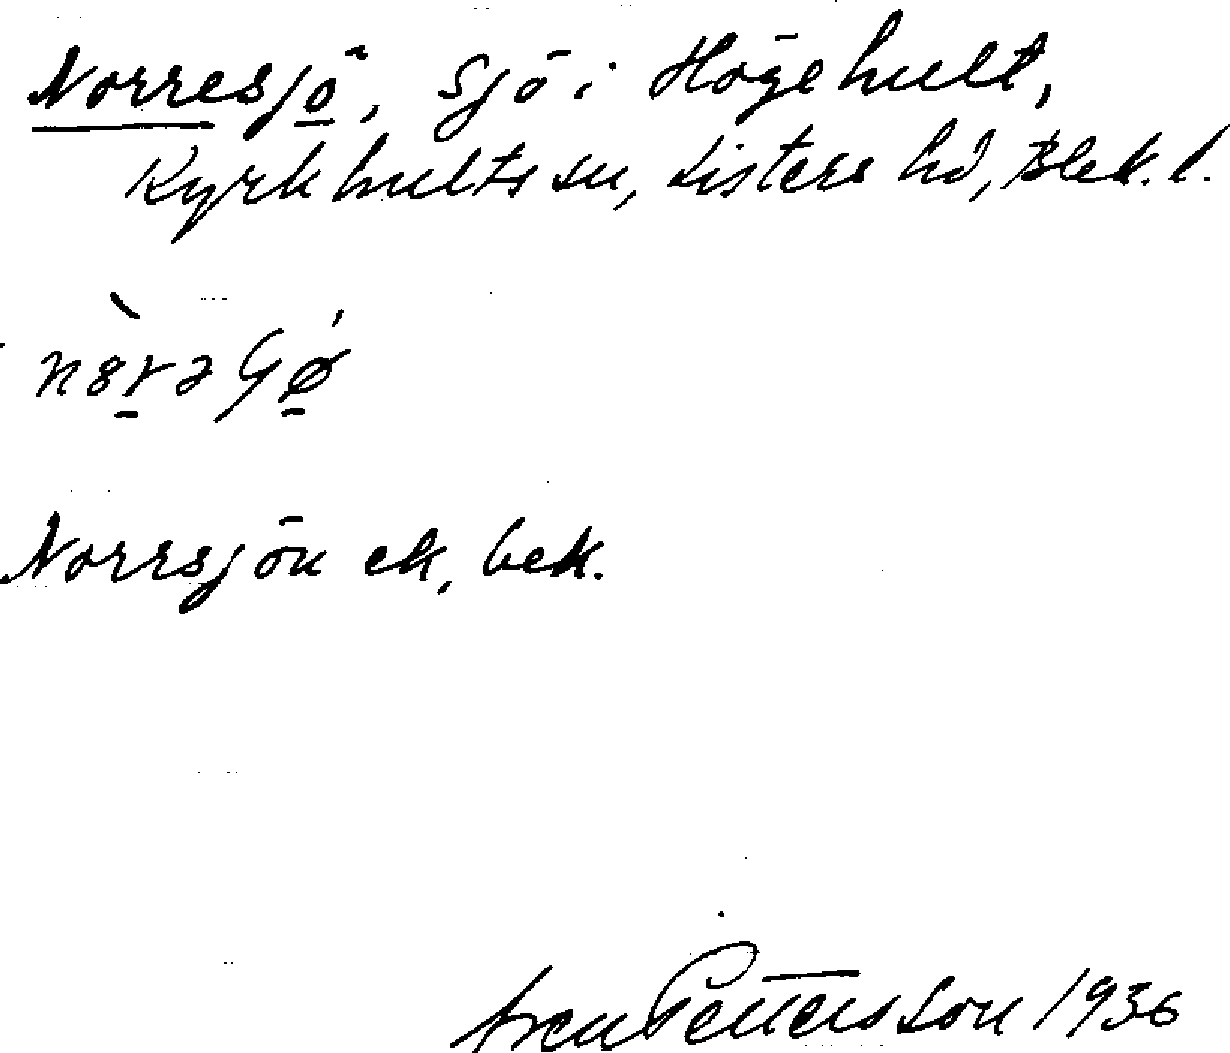 Norresjö, Sjö i Högehult,
Kyrkhults sn, Listers hd, Blek. l.
Norrsjön ek, bek.
Pettersson 1936